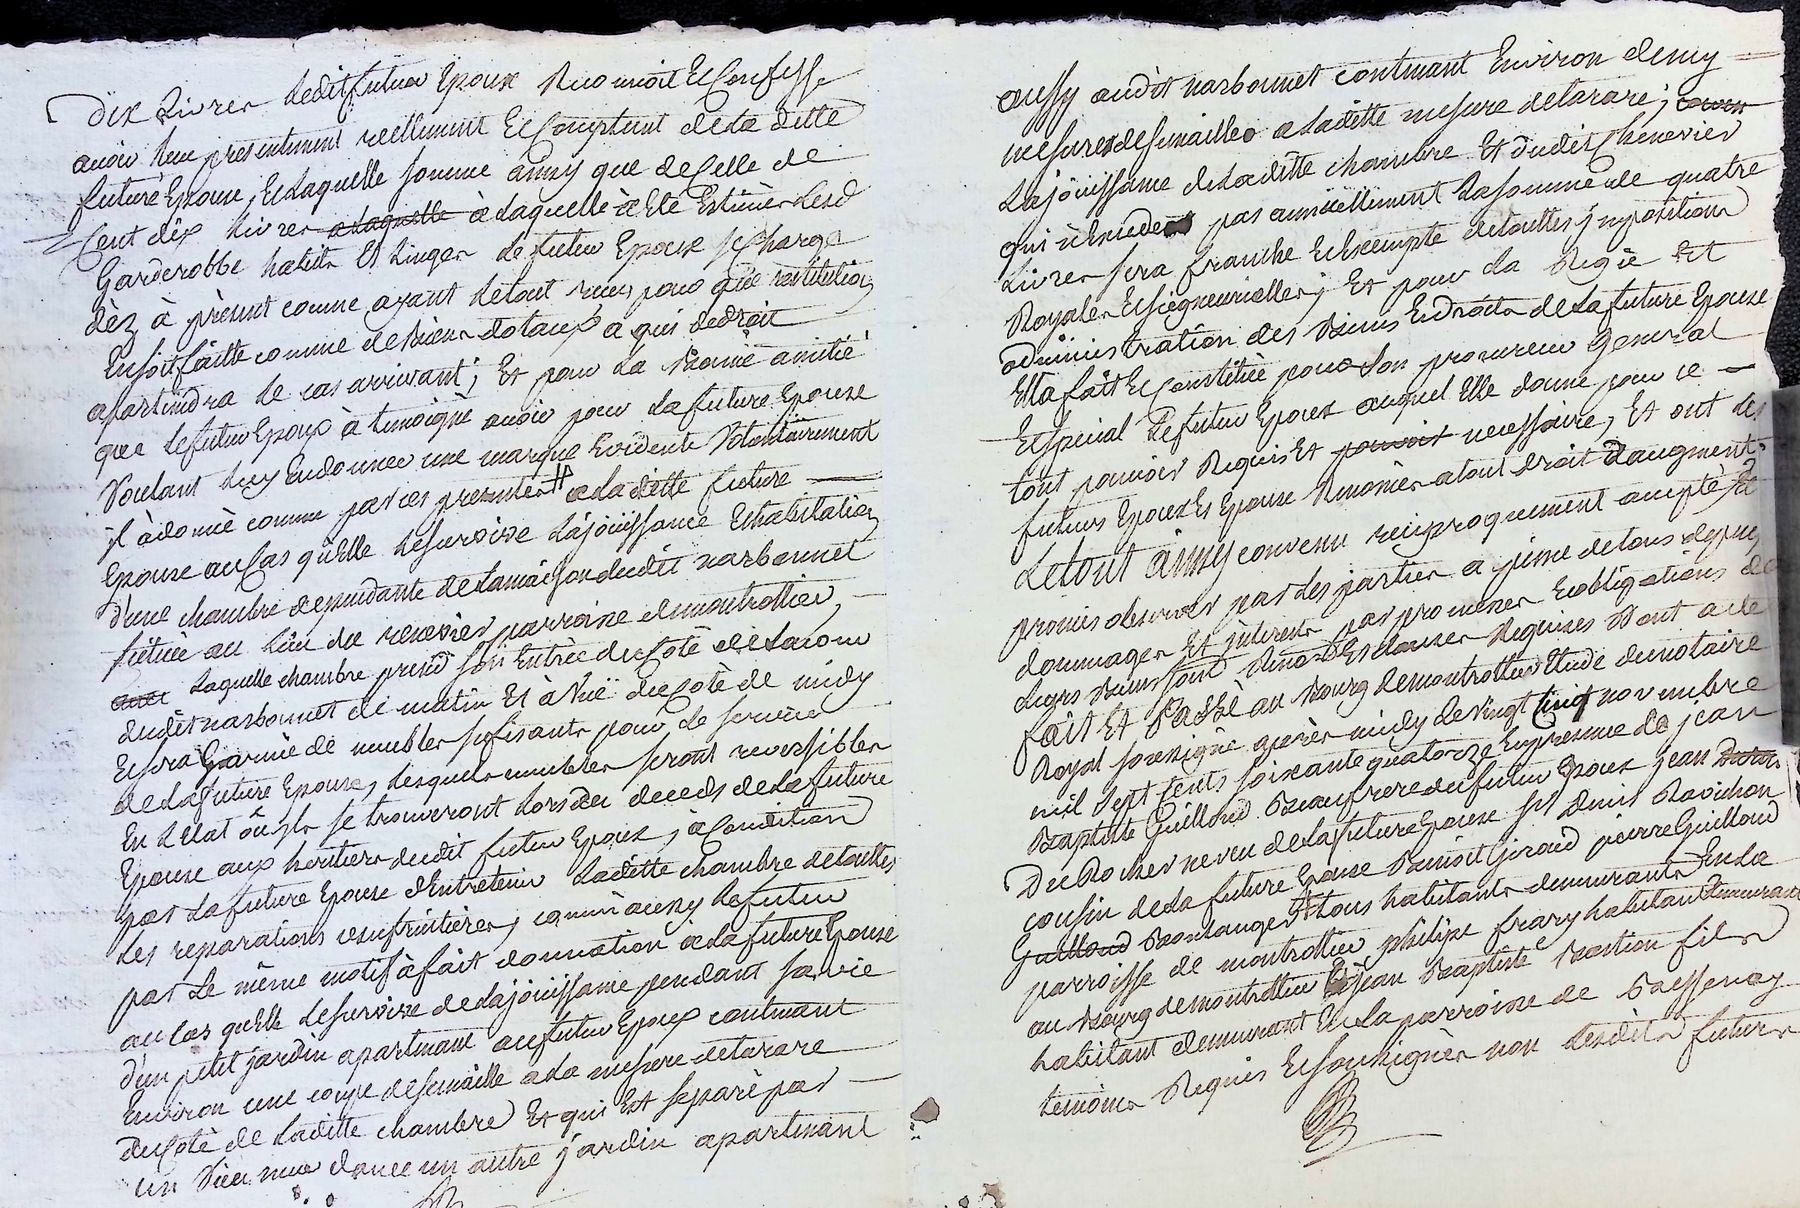 Dix Livres Ledit futur Epoux Reconnoit Et Confesse
avoir Reçu presentement reellement Et Comptant de la ditte
future Epouse, Et Laquelle somme ainsy que de Celle de
Cent dix Livres a laquelle à Laquelle à Eté Estimée Lesd
Garderobbe habits Et Linges Le futur Epoux se Charge
dèz à present comme ayant Le tout reçu pour que restitution
En soit faitte comme de biens dotaux a qui de droit
apartiendra le cas arrivant; Et pour La Bonne amitié
que Le futur Epoux à temoigné avoir pour La future Epouse
Voulant Luy En donner une marque Evidente Volontairement
il à donné comme par ces presentes a La ditte future
Epouse au Cas qu'Elle Le survive La joüissance Et habitation
d'une chambre dependante de La maison dudit narbonnet
situèe au Lieu du renevier parroisse de montrottier,
avec Laquelle chambre prend son Entrèe du Coté de La cour
dudit narbonnet de matin Et à vuë du Coté de midy
Et sera Garnie de meubles sufisants pour le service
de La future Epouse, Lesquels meubles seront reversibles
En L'Etat où ils se trouveront Lors du deceds de La future
Epouse aux heritiers dudit futur Epoux, à Condition
par La future Epouse d'Entretenir Laditte chambre de touttes
Les reparations usufruitieres, comm'aussy Le futur
par Le même motif à fait donnation à La future Epouse
au Cas qu'Elle Le survive de La joüissance pendant sa vie
d'un petit jardin apartenant au futur Epoux contenant
Environ une coupe de semaille a La mesure de tarare
du Coté de Laditte chambre Et qui Est separé par
un vieu mur d'avec un autre jardin apartenant
aussy audit narbonnet contenant Environ demy
mesure de semaille a Laditte mesure de tarare;
La joüissance de Laditte chambre Et dudit Chenevier
qui n'Excede pas annuellement La somme de quatre
Livres sera franche Et Exempte de touttes impositions
Royales Et seigneurialles; Et pour La Regie Et
administration des Biens Et Droits de La future Epouse
Elle a fait Et Constitué pour son procureur General
Et special Le futur Epoux auquel Elle donne pour ce
tout pouvoir Requis Et pouvoir necessaire, Et ont Les
futurs Epoux Et Epouse Renoncer a tout droit d'augment;
Le tout ainsy convenu reciproquement accepté Et
promis observer par Les parties a peine de tous depens
dommages Et interets par promesses Et obligations de
Leurs Biens sous Renon Et clauses Requises Dont acte
fait Et Passé au Bourg de montrottier Etude du notaire
Royal soussigné après midy Le Vingt Cinq novembre
mil sept Cents soixante quatorze En presence de jean
Baptiste Guilloud Beaufrere du futur Epoux jean
Du Rocher neveu de La future Epouse Sr Denis Ravichon
cousin de La future Epouse Benoit Giraud pierre Guilloud
Guilloud Boulanger tous habitants demeurants En La
parroisse de montrottier philipe frary habitant demeurant
au Bourg de montrottier Et jean Baptiste Bastion fils
habitant demeurant En La parroisse de Bessenay
temoins Requis Et soussignés non Lesdits futurs